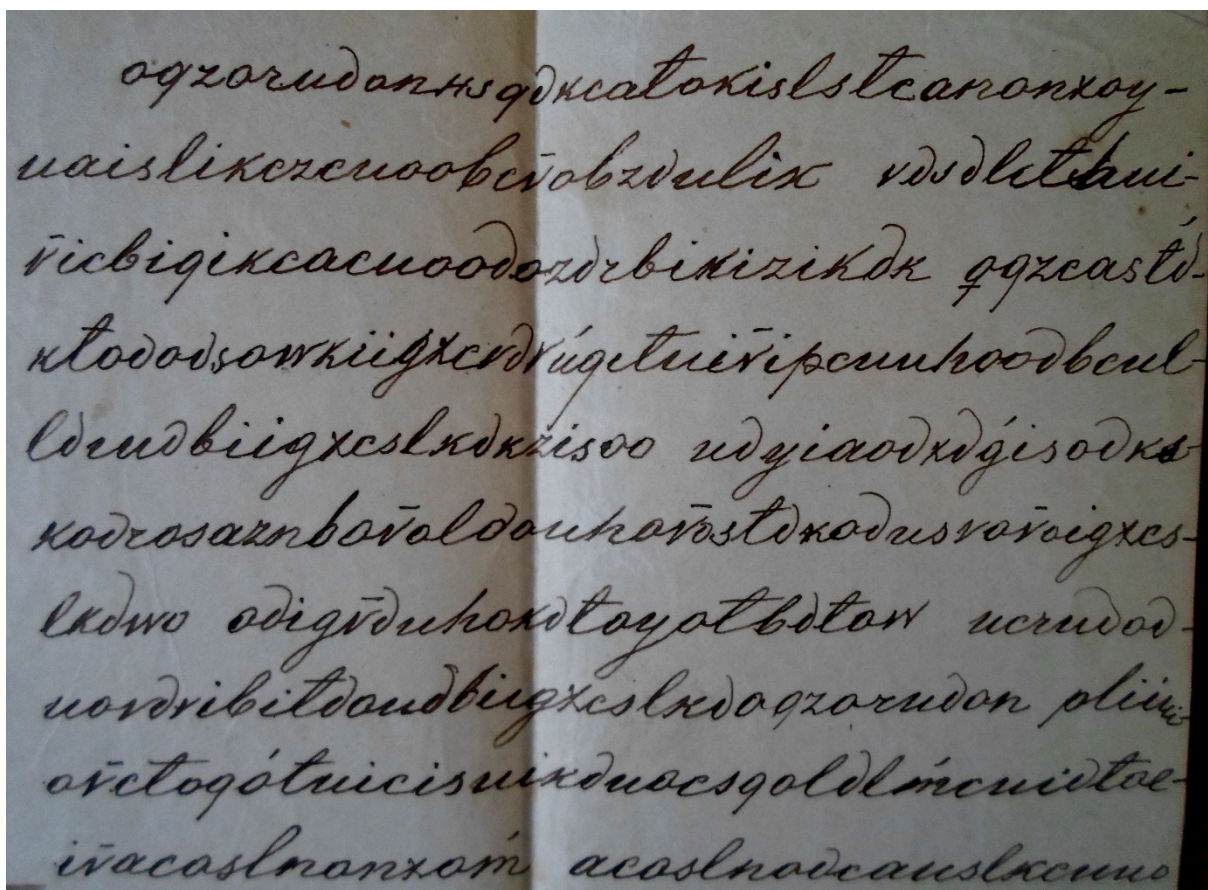 ogzorudonnsgdkcatokislstcanonxoy-
uaislikczcuoobcv̄obzdulix vdsdlctbui-
v̄icbigikcacuoodozdrbikizikdk qgzcastd-
xtododsowkiigxcvdvúgctuiev̄ipcuuhoodbcul-
ldrudbiigxcslxdkzisoo udyiaodxdǵisodks-
xodrosaznbov̄oldouhov̄ostdxodusvov̄oigxcs-
lkdwo odigv̄duhoxdtoyotbdtow ucrudod-
uovdvibitdoudbiigxcslxdogzorudon
ov̄ctogótuicisuixduocsgoldlḿcuidtoc-
iv̄acoslnonxoḿ acoslnodcauslkcuuo